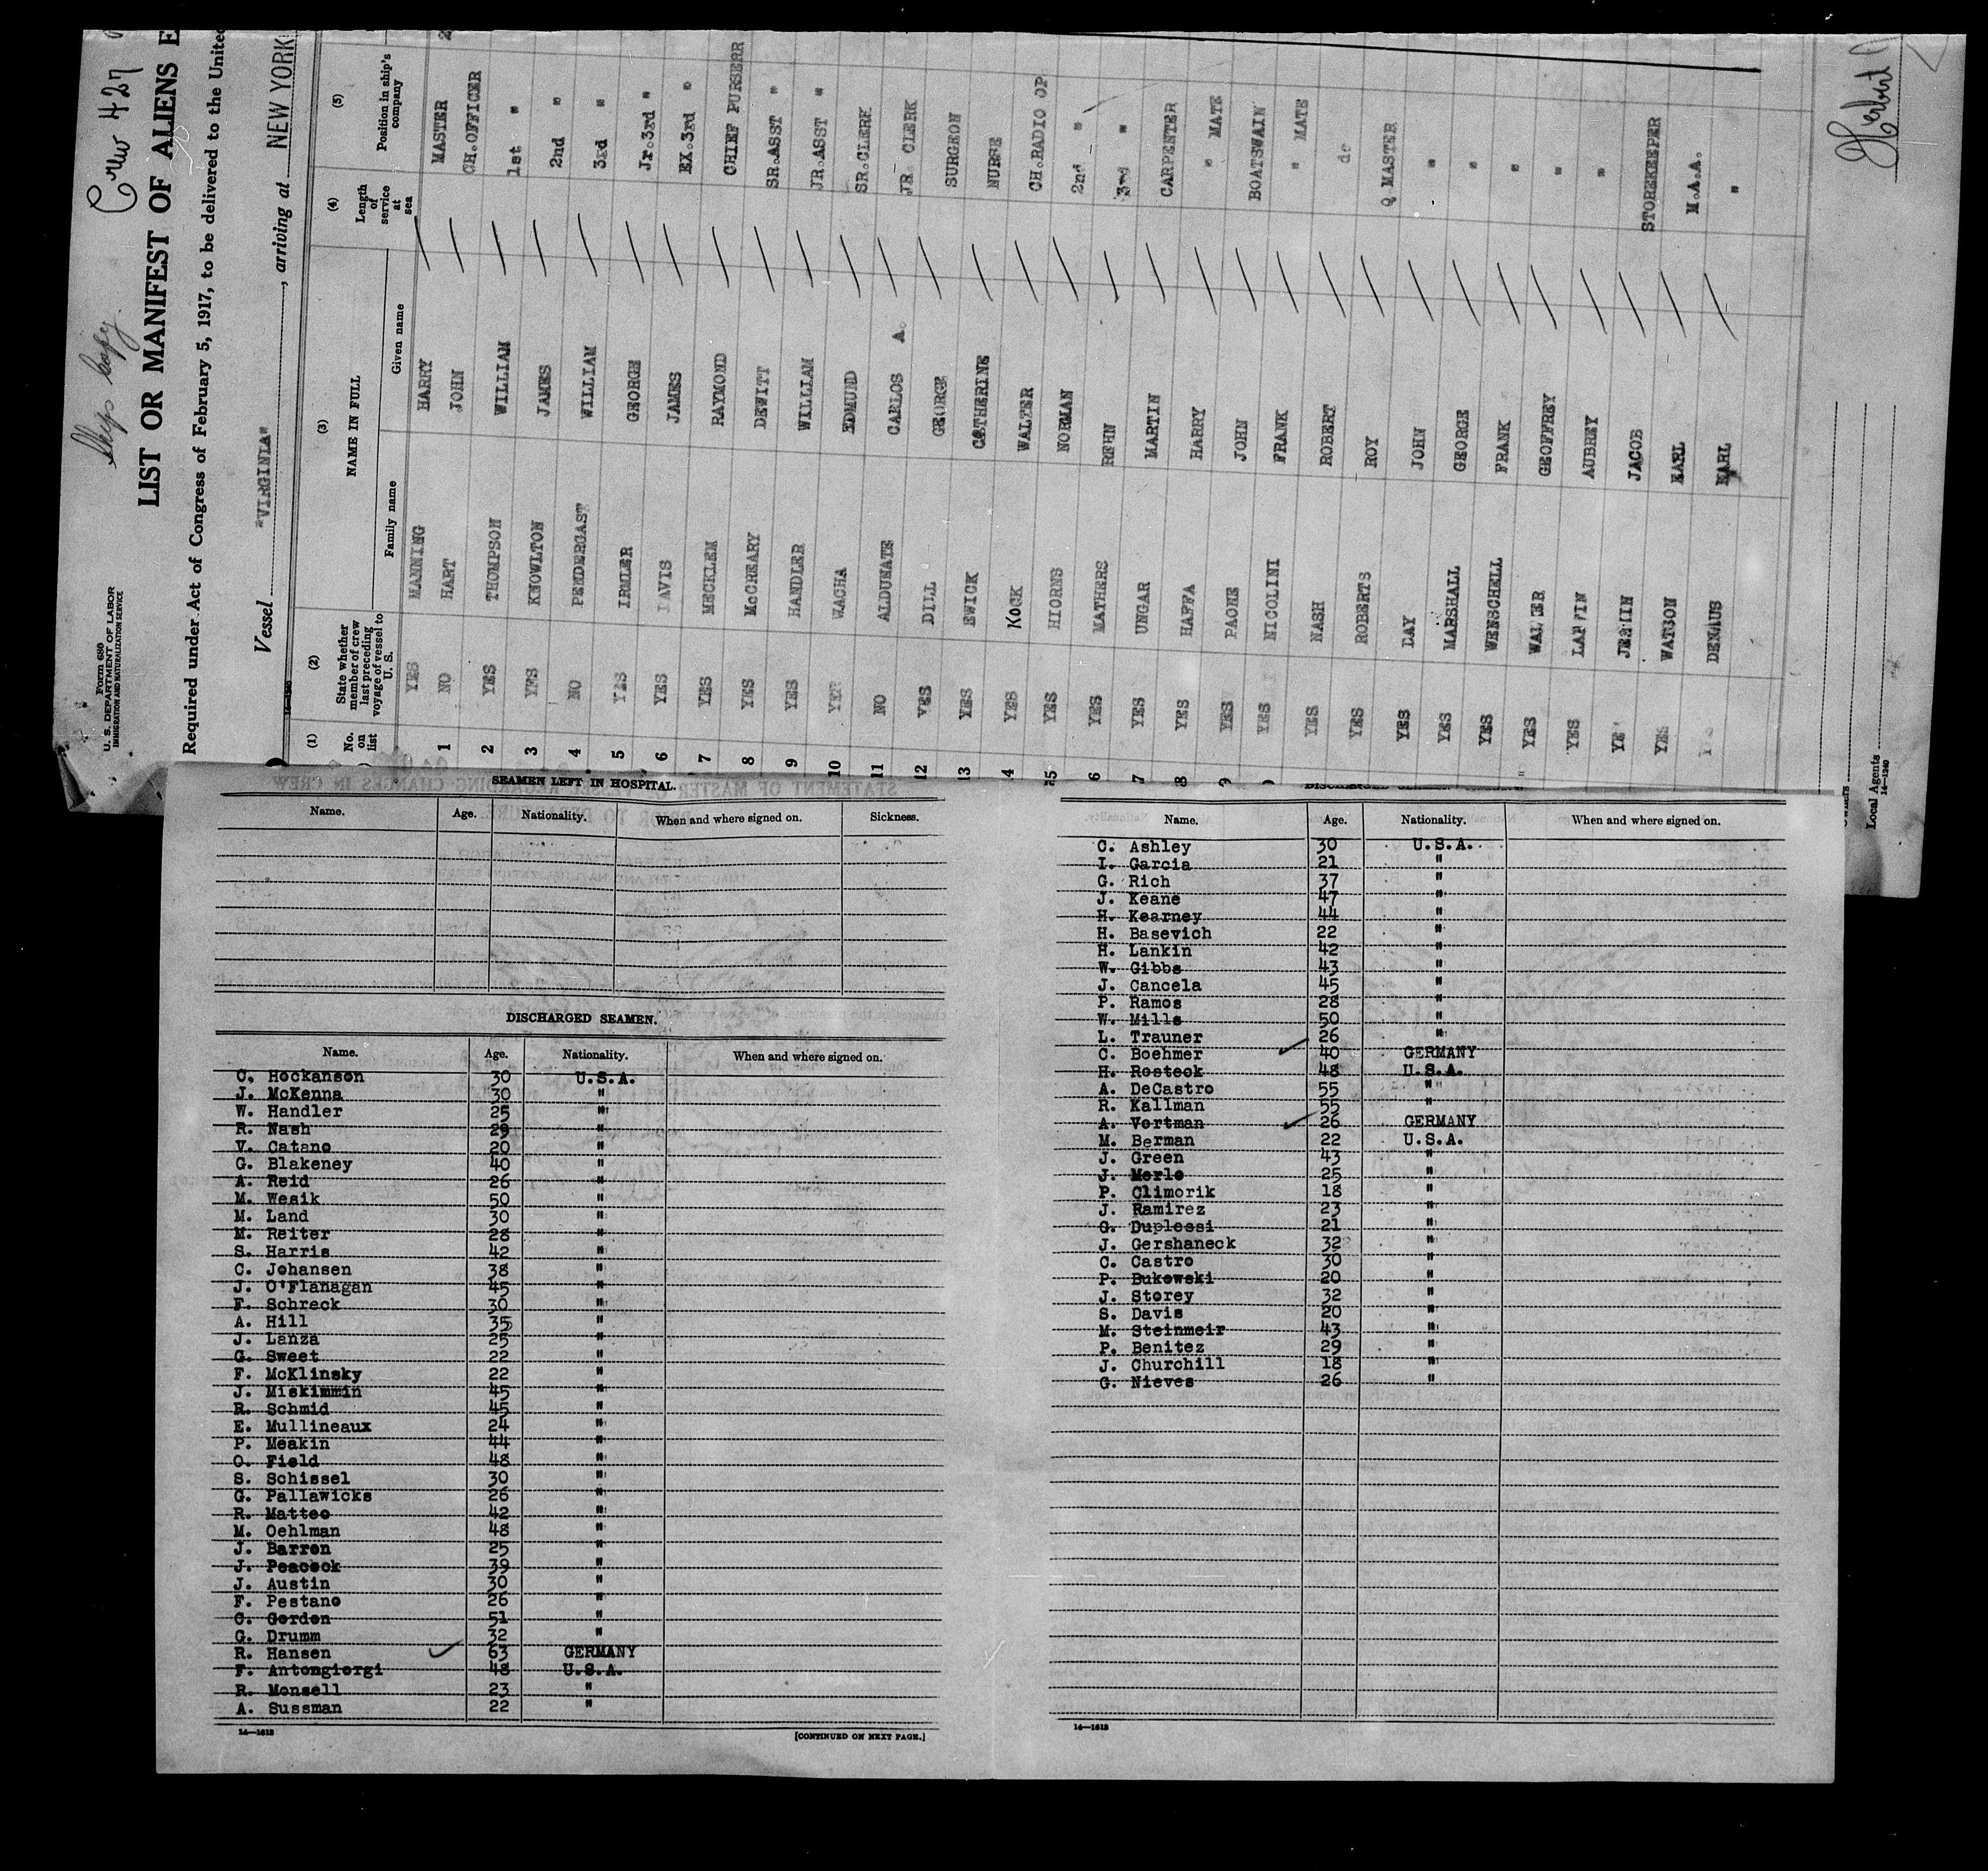 Ships Copy.
Crew 427
Form 680
U. S. DEPARTMENT OF LABOR
IMMIGRATION AND NATURALIZATION SERVICE
LIST OR MANIFEST OF ALIENS E
Required under Act of Congress of February 5, 1917, to be delivered to the United
Vessel "VIRGINIA", arriving at NEW YORK
(1) (2) (3) (4) (5)
No. on list State whether member of crew last preceding voyage of vessel to U. S. NAME IN FULL Length of service at sea Position in ship's company
Family name Given name
YES MANNING HARRY MASTER
1 NO HART JOHN CH.OFFICER
2 YES THOMPSON WILLIAM 1st "
3 YES KNOWLTON JAMES 2nd "
4 NO PENDERGAST WILLIAM 3rd "
5 YES IRMLER GEORGE Jr.3rd "
6 YES DAVIS JAMES EX.3rd "
7 YES MECKLEM RAYMOND CHIEF PURSERR
8 YES McCREARY DEWITT SR.ASST "
9 YES HANDLER WILLIAM JR.ASST "
10 YES WACHA EDMUND SR.CLERK
11 NO ALDUNATE CARLOS A. JR. CLERK
12 YES DILL GEORGE SURGEON
13 YES EWICK CATHERINE NURSE
14 YES KOCK WALTER CH.RADIO OP.
15 YES HIORNS NORMAN 2nd - "
6 YES MATHERS 3rd "
7 YES UNGAR MARTIN CARPENTER
8 YES HAFFA HARRY " MATE
9 YES PAONE JOHN BOATSWAIN
YES NICOLINI FRANK " MATE
YES NASH ROBERT do
YES ROBERTS ROY Q MASTER
YES DAY JOHN "
YES MARSHALL GEORGE "
YES WENSCHELL FRANK "
YES WALTER GEOFFREY "
YES AUBREY "
JACOB STOREKEEPER
YES WATSON EARL M.A.A.
DENAUS EARL "
Herbert
Local Agents
14—1240
SEAMEN LEFT IN HOSPITAL.
Name. Age. Nationality. When and where signed on. Sickness.
DISCHARGED SEAMEN.
Name. Age. Nationality. When and where signed on.
C. Hockanson 30 U.S.A.
J. McKenna 30 "
W. Handler 25 "
R. Nash 29 "
V. Catano 20 "
G. Blakeney 40 "
A. Reid 26 "
M. Wesik 50 "
M. Land 30 "
M. Reiter 28 "
S. Harris 42 "
C. Johansen 38 "
J. O'Flanagan 45 "
F. Schreck 30 "
A. Hill 35 "
J. Lanza 25 "
G. Sweet 22 "
F. McKlinsky 22 "
J. Miskimmin 45 "
R. Schmid 45 "
E. Mullineaux 24 "
P. Meakin 44 "
O. Field 48 "
S. Schissel 30 "
G. Pallawicks 26 "
R. Matteo 42 "
M. Oehlman 48 "
J. Barron 25 "
J. Peacock 39 "
J. Austin 30 "
F. Pestano 26 "
C. Gordon 51 "
G. Drumm 32 "
R. Hansen 63 GERMANY
F. Antongiorgi 48 U.S.A.
R. Monsell 23 "
A. Sussman 22 "
14—1613
[CONTINUED ON NEXT PAGE.]
Name. Age. Nationality. When and where signed on.
C. Ashley 30 U.S.A.
I. Garcia 21 "
G. Rich 37 "
J. Keane 47 "
H. Kearney 44 "
H. Basevich 22 "
H. Lankin 42 "
W. Gibbs 43 "
J. Cancela 45 "
P. Ramos 28 "
W. Mills 50 "
L. Trauner 26 "
C. Boehmer 40 GERMANY
H. Rosteck 48 U.S.A.
A. DeCastro 55 "
R. Kallman 55 "
A. Vortman 26 GERMANY
M. Berman 22 U.S.A.
J. Green 43 "
J. Merlo 25 "
P. Climorik 18 "
J. Ramirez 23 "
G. Duplessi 21 "
J. Gershaneck 32 "
C. Castro 30 "
P. Bukowski 20 "
J. Storey 32 "
S. Davis 20 "
M. Steinmeir 43 "
P. Benitez 29 "
J. Churchill 18 "
G. Nieves 26 "
14—1613